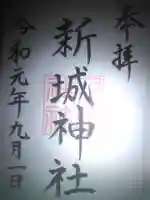 本拝
新城神社
令和元年九月一日